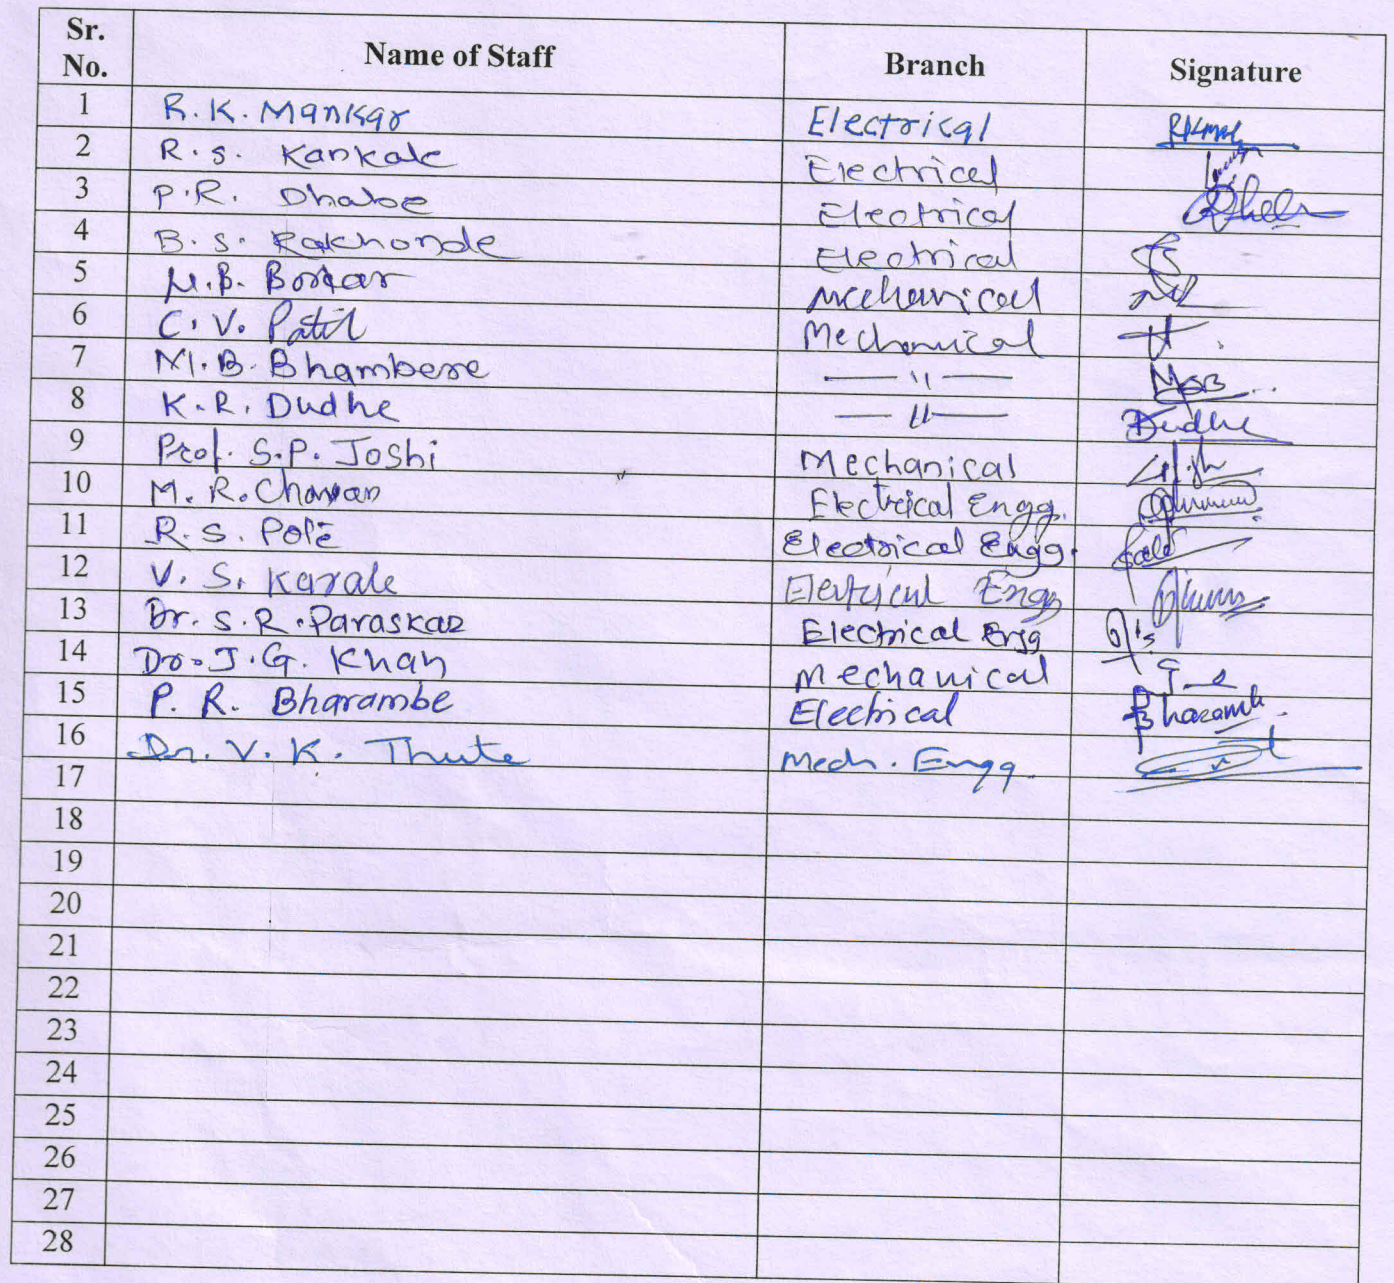 Sr. No. Name of Staff Branch Signature
1 R. K. Mankar Electrical
2 R. S. Kankale Electrical
3 P. R. Dhabe Electrical
4 B. S. Rakhonde Electrical
5 M. B. Borkar Mechanical
6 C. V. Patil Mechanical
7 M. B. Bhambere — " —
8 K. R. Dudhe — " — Dudhe
9 Prof. S. P. Joshi Mechanical
10 M. R. Chavan Electrical Engg.
11 R. S. Pole Electrical Engg.
12 V. S. Karale Electrical Engg
13 Dr. S. R. Paraskar Electrical Engg
14 Dr. J. G. Khan Mechanical
15 P. R. Bharambe Electrical Bharambe
16 Dr. V. K. Thute Mech. Engg.
17
18
19
20
21
22
23
24
25
26
27
28